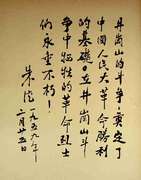 井岗山的斗争，奠定了
中国人民大革命胜利
的基础。在井岗山斗
争中牺牲的革命烈士
们永垂不朽！
朱德
一九五九年
二月廿五日